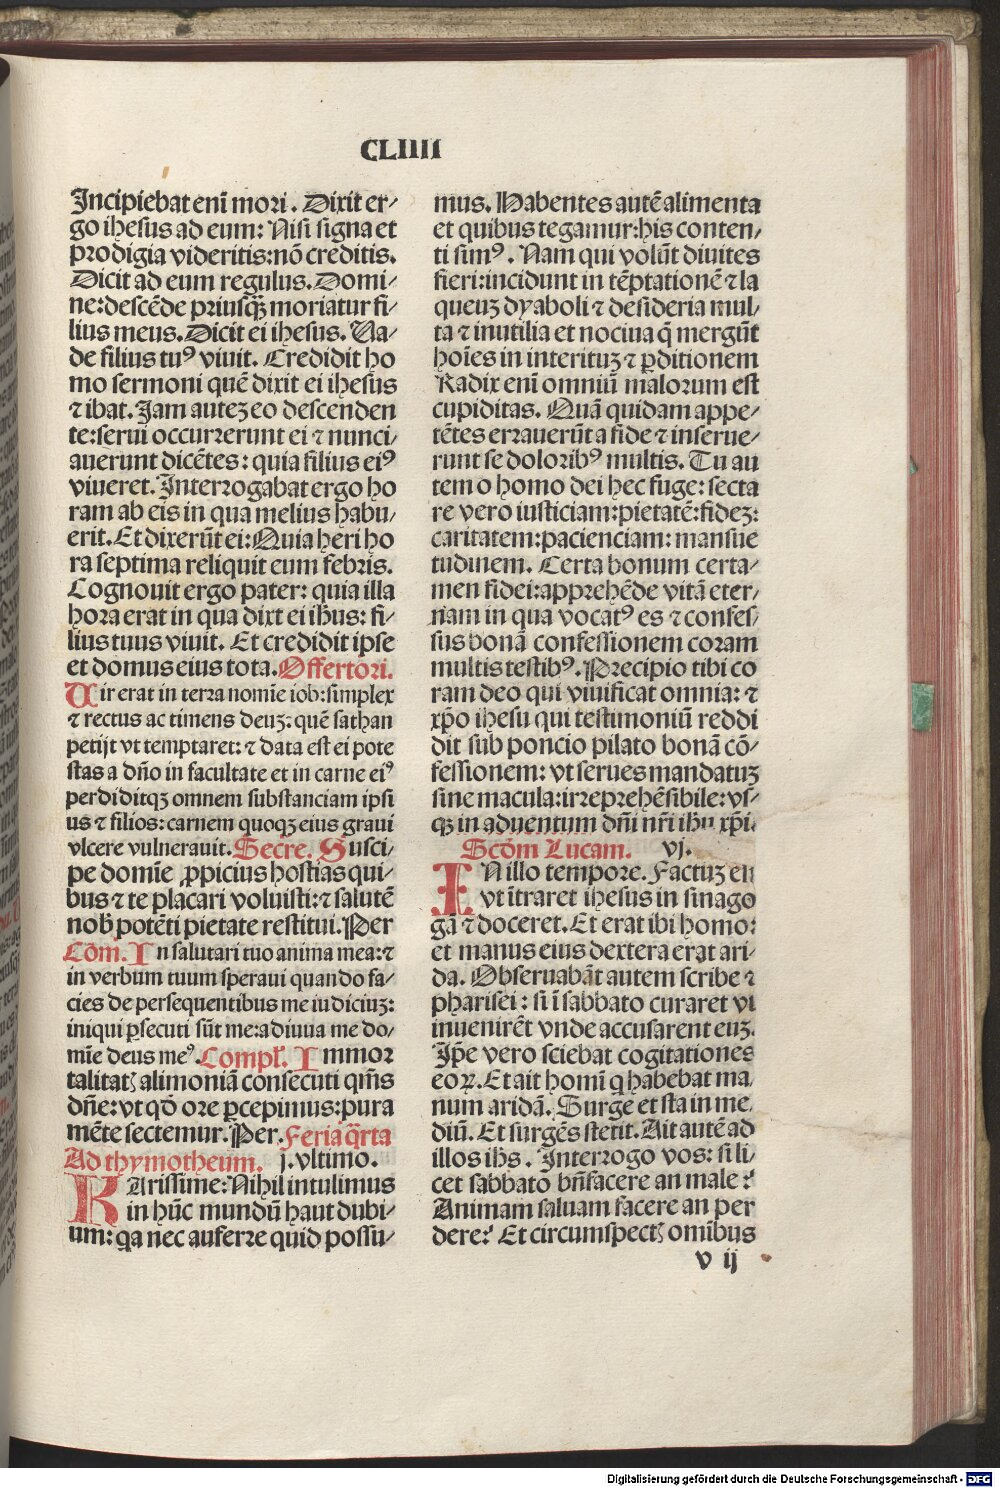 CLIIII
Incipiebat enī mori . Dixit er⸗
go ihesus ad eum: Nisi signa et
prodigia videritis: nō creditis.
Dicit ad eum regulus. Domi⸗
ne: descēde priusqꝫ moriatur fi⸗
lius meus. Dicit ei ihesus. Va⸗
de filius tuꝰ viuit. Credidit ho
mo sermoni quē dixit ei ihesus
⁊ ibat. Jam autez eo descenden
te: serui occurrerunt ei ⁊ nunci⸗
auerunt dicētes: quia filius eiꝰ
viueret. Interrogabat ergo ho
ram ab eis in qua melius habu⸗
erit. Et dixerūt ei: Quia heri ho
ra septima reliquit eum febris.
Cognouit ergo pater: quia illa
hora erat in qua dixt ei ihus: fi⸗
lius tuus viuit. Et credidit ipse
et domus eius tota. Offertori.
Vir erat in terra nomīe iob: simplex
⁊ rectus ac timens deuz: quē sathan
petijt vt temptaret: ⁊ data est ei pote
stas a dño in facultate et in carne eiꝰ
perdiditqꝫ omnem substanciam ipsi
us ⁊ filios: carnem quoqꝫ eius graui
vlcere vulnerauit. Secre. Susci⸗
pe domīe ꝓpicius hostias qui⸗
bus ⁊ te placari voluisti: ⁊ salutē
nob potēti pietate restitui. Per
Cōm. In salutari tuo anima mea: ⁊
in verbum tuum speraui quando fa⸗
cies de persequentibus me iudiciuz:
iniqui ꝑsecuti sūt me: adiuua me do⸗
mīe deus meꝰ. Compl. Immor
talitatꝭ alimoniā consecuti qm̄s
dñe: vt qd̄ ore ꝑcepimus: pura
mēte sectemur. Per. Feria q̄rta
Ad thymotheum. j. vltimo.
Karissime: Nihil intulimus
in hūc mundū haut dubi⸗
um: qa nec auferre quid possu⸗
mus. Habentes autē alimenta
et quibus tegamur: his conten⸗
ti simꝰ. Nam qui volūt diuites
fieri: incidunt in tēptationē ⁊ la
queuz dyaboli ⁊ desideria mul⸗
ta ⁊ inutilia et nociua q̄ mergūt
hoīes in interituz ⁊ ꝑditionem
Radix enī omniū malorum est
cupiditas. Quā quidam appe⸗
tētes errauerūt a fide ⁊ inserue⸗
runt se doloribꝰ multis. Tu au
tem o homo dei hec fuge: secta
re vero iusticiam: pietatē: fidez:
caritatem: pacienciam: mansue
tudinem. Certa bonum certa⸗
men fidei: apprehēde vitā eter⸗
nam in qua vocatꝰ es ⁊ confes⸗
sus bonā confessionem coram
multis testibꝰ. Precipio tibi co
ram deo qui viuificat omnia: ⁊
xp̄o ihesu qui testimoniū reddi
dit sub poncio pilato bonā cō⸗
fessionem: vt serues mandatuz
sine macula: irreprehēsibile: vs⸗
qꝫ in aduentum dñi nr̄i ihu xp̄i.
Scdm̄ Lucam. vj.
IN illo tempore. Factuz en
vt ītraret ihesus in sinago
gā ⁊ doceret. Et erat ibi homo:
et manus eius dextera erat ari⸗
da. Obseruabāt autem scribe ⁊
pharisei : si ī sabbato curaret vt
inuenirēt vnde accusarent euz.
Ip̄e vero sciebat cogitationes
eoꝝ. Et ait homī q habebat ma⸗
num aridā. Surge et sta in me⸗
diū. Et surgēs stetit. Ait autē ad
illos ihs . Interrogo vos: si li⸗
cet sabbato bn̄facere an male :
Animam saluam facere an per
dere: Et circumspectꝭ omībus
v ij
Digitalisierung gefördert durch die Deutsche Forschungsgemeinschaft - DFG